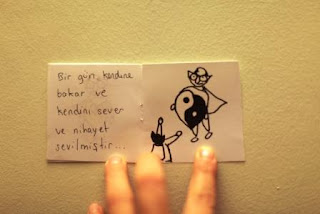 Bir gün kendine
bakar ve
kendini sever
ve nihayet
sevilmiştir...